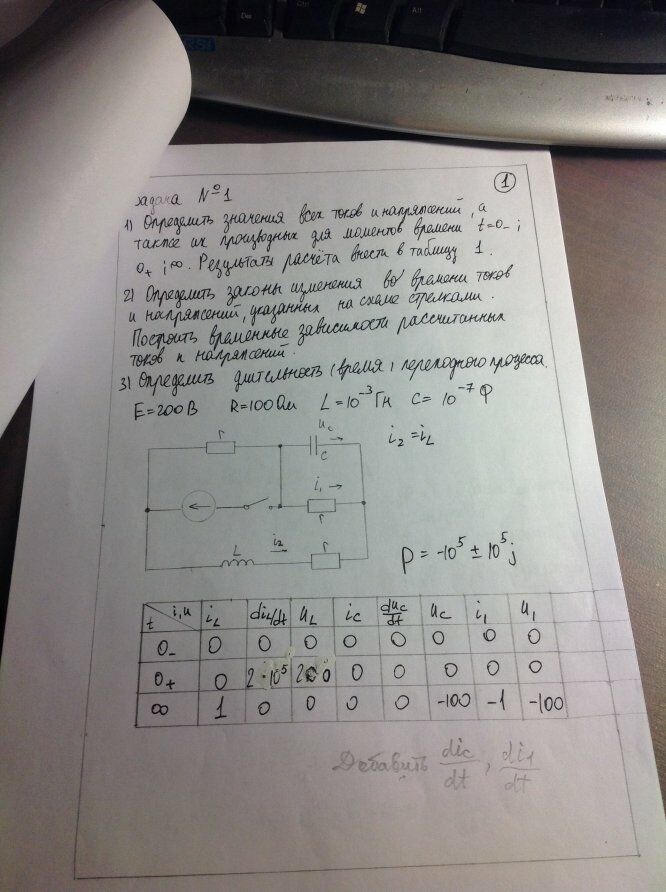 ①
Задача №1
1) Определить значения всех токов и напряжений, а
также их производных для моментов времени t=0₋;
0₊; ∞. Результаты расчёта внести в таблицу 1.
2) Определить законы изменения во времени токов
и напряжений, указанных на схеме стрелками.
Построить временные зависимости рассчитанных
токов и напряжений.
3) Определить длительность (время) переходного процесса.
E=200В R=100Ом L=10⁻³Гн C=10⁻⁷Ф
r uc C i₂=iL
i₁ r
L i₂ r
p=-10⁵±10⁵j
t i,u iL diL/dt uL ic duc/dt uc i₁ u₁
0₋ 0 0 0 0 0 0 0 0
0₊ 0 2·10⁵ 200 0 0 0 0 0
∞ 1 0 0 0 0 -100 -1 -100
Добавить dic/dt, di₁/dt